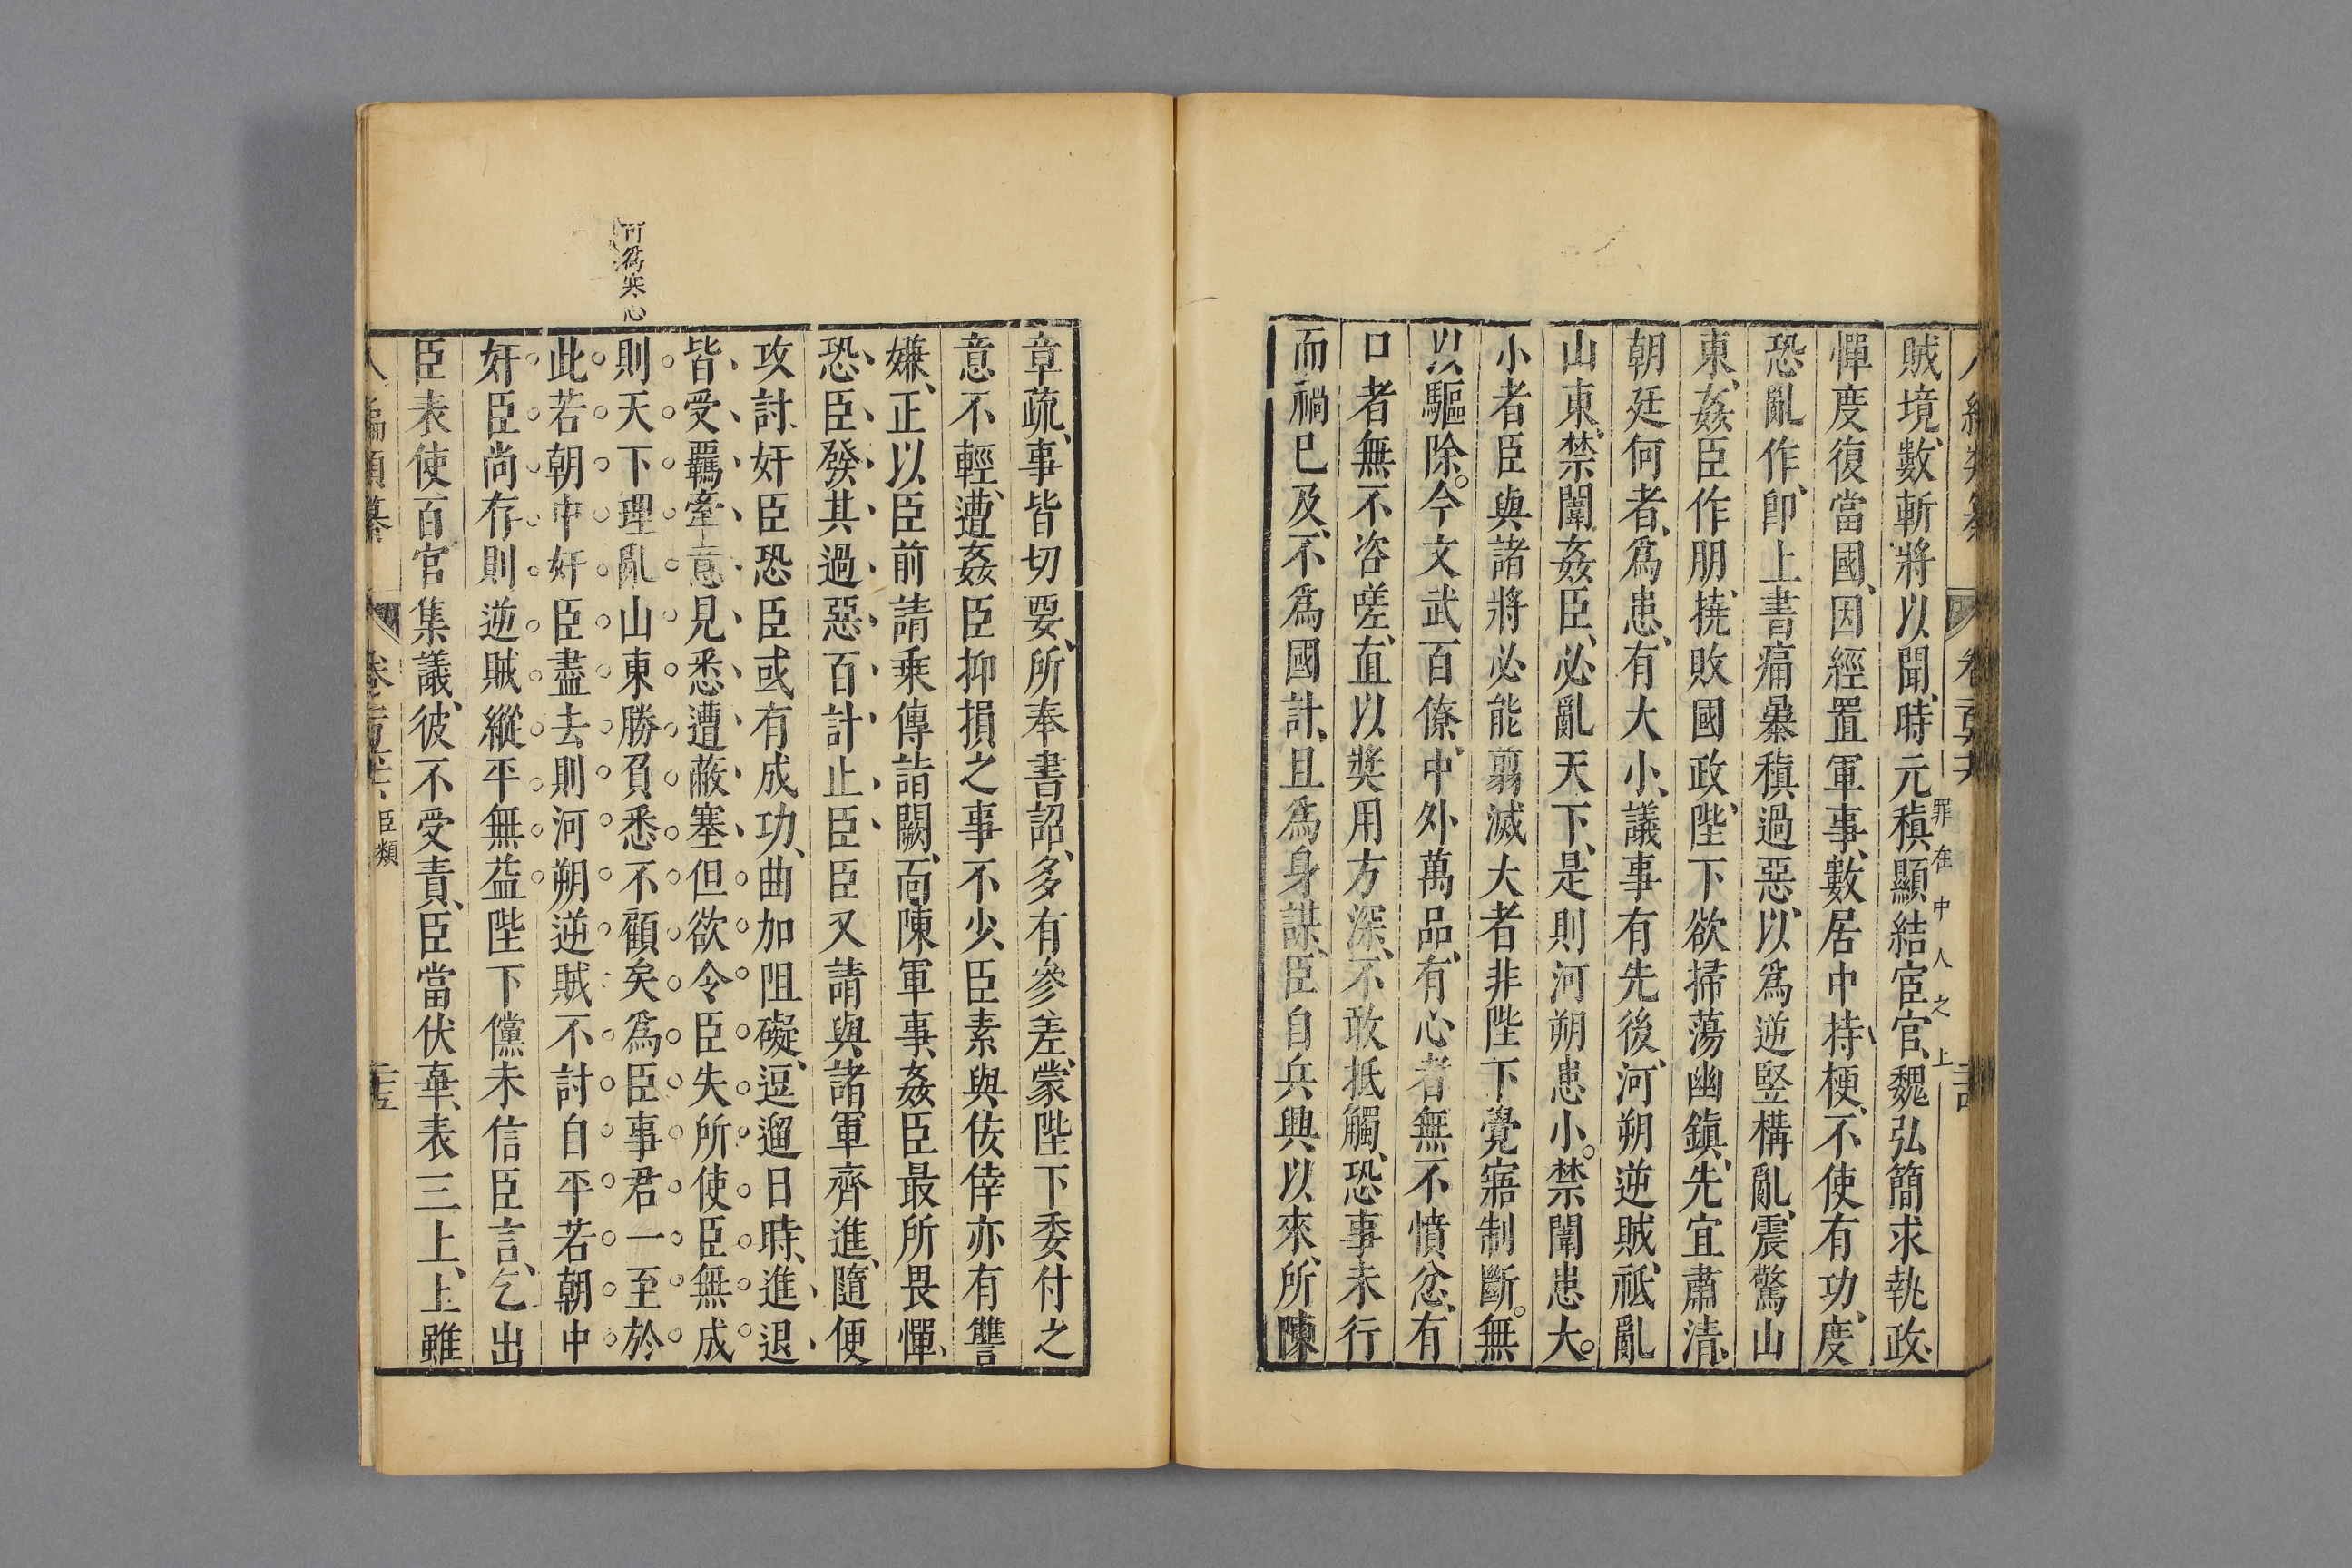 罪在中人之上
賊境、數斬將以聞、時元稹顯結宦官、魏弘簡求執政、
憚度復當國、因經置軍事、數居中持梗、不使有功、度
恐亂作、卽上書痛暴稹過惡、以爲逆竪構亂、震驚山
東、姦臣作朋、撓敗國政、陛下欲掃蕩幽鎭、先宜肅清、
朝廷何者、爲患、有大小、議事有先後、河朔逆賊、祇亂
山東、禁闈姦臣、必亂天下、是則河朔患小。禁闈患大。
小者臣與諸將必能翦滅大者非陛下覺寤制斷。無
以驅除。今文武百僚、中外萬品、有心者無不憤忿、有
口者無不咨嗟、直以奬用方深、不敢抵觸、恐事未行
而禍已及、不爲國計、且爲身謀、臣自兵興以來、所陳
章疏、事皆切要、所奉書詔、多有參差、蒙陛下委付之
意不輕、遭姦臣抑損之事不少、臣素與佞倖亦有讐
嫌、正以臣前請乘傳詣闕、面陳軍事、姦臣最所畏憚、
恐臣發其過惡百計止臣臣又請與諸軍齊進、隨便
攻討、奸臣恐臣或有成功、曲加阻礙、逗遛日時、進退
皆受羈牽意見悉遭蔽塞但欲令臣失所使臣無成
可爲寒心
則天下理亂山東勝負悉不顧矣爲臣事君一至於
此若朝中奸臣盡去則河朔逆賊不討自平若朝中
奸臣尚存則逆賊縱平無益陛下儻未信臣言、乞出
臣表使百官集議、彼不受責、臣當伏辜、表三上、上雖
臣類